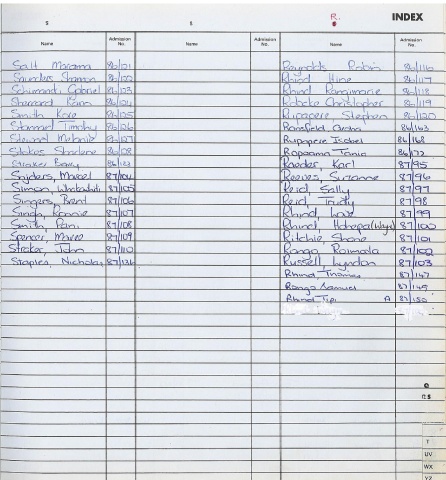 S
R.
INDEX
Name
Admission No.
Name
Admission No.
Name
Admission No.
Salt Marama 86/121
Saunders Shannon 86/122
Gabriel 86/123
86/124
Smith Kore 86/125
Timothy 86/126
Stewart Melanie 86/127
Stokes Sharlene 86/128
Barry
Snijders, Marcel 87/104
Simon, 87/105
Singers, Brent 87/106
Singh, Ronnie 87/107
Smith, Pani 87/108
Spencer, Maree 87/109
Straker, John 87/110
Staples, Nicholas 87/136
Reynolds Robin 86/116
Rhind Hine 86/117
Rhind Rangimarie 86/118
Christopher 86/119
Rupapere Stephen 86/120
86/163
Rupapere Isobel 86/168
Ropoama Tania 86/172
Roeder, Karl 87/95
Reeves, Suzanne 87/96
Reid, Sally 87/97
Reid, Trudy 87/98
Rhind, Love 87/99
Rhind, 87/100
Ritchie Shane 87/101
Rongo, 87/102
Russell, Lyndon 87/103
Rhind, Thomas 87/147
Rongo Samuel 87/149
Rhind Tipi A 87/150
Q
RS
T
UV
WX
YZ